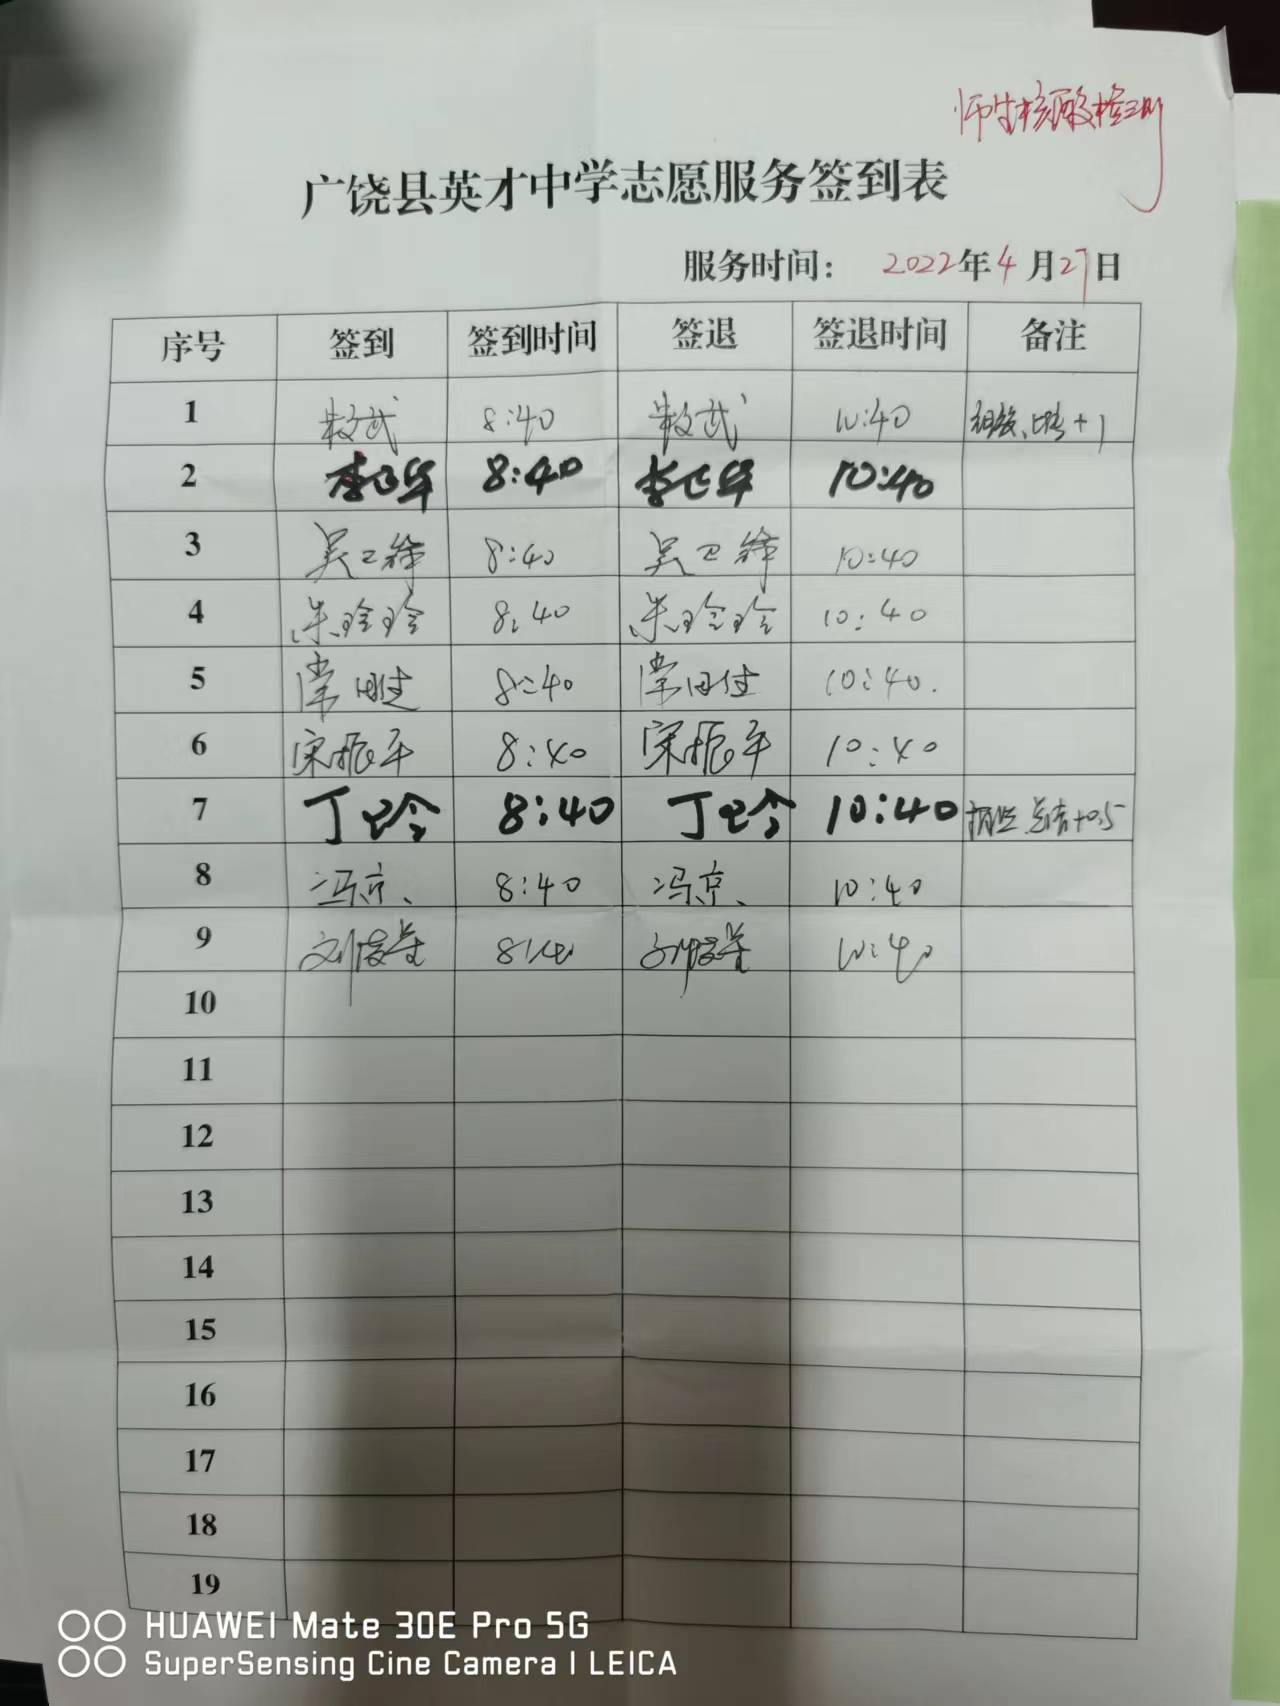 师生核酸检测
广饶县英才中学志愿服务签到表
服务时间： 2022年4月27日
序号 签到 签到时间 签退 签退时间 备注
1 8:40 10:40 +1
2 8:40 10:40
3 吴卫 8:40 吴卫 10:40
4 朱玲玲 8:40 朱玲玲 10:40
5 常田佳 8:40 常田佳 10:40.
6 宋振平 8:40 宋振平 10:40
7 丁玲 8:40 丁玲 10:40 总结+0.5
8 冯京、 8:40 冯京、 10:40
9 刘 8:40 刘 10:40
10
11
12
13
14
15
16
17
18
19
HUAWEI Mate 30E Pro 5G
SuperSensing Cine Camera | LEICA